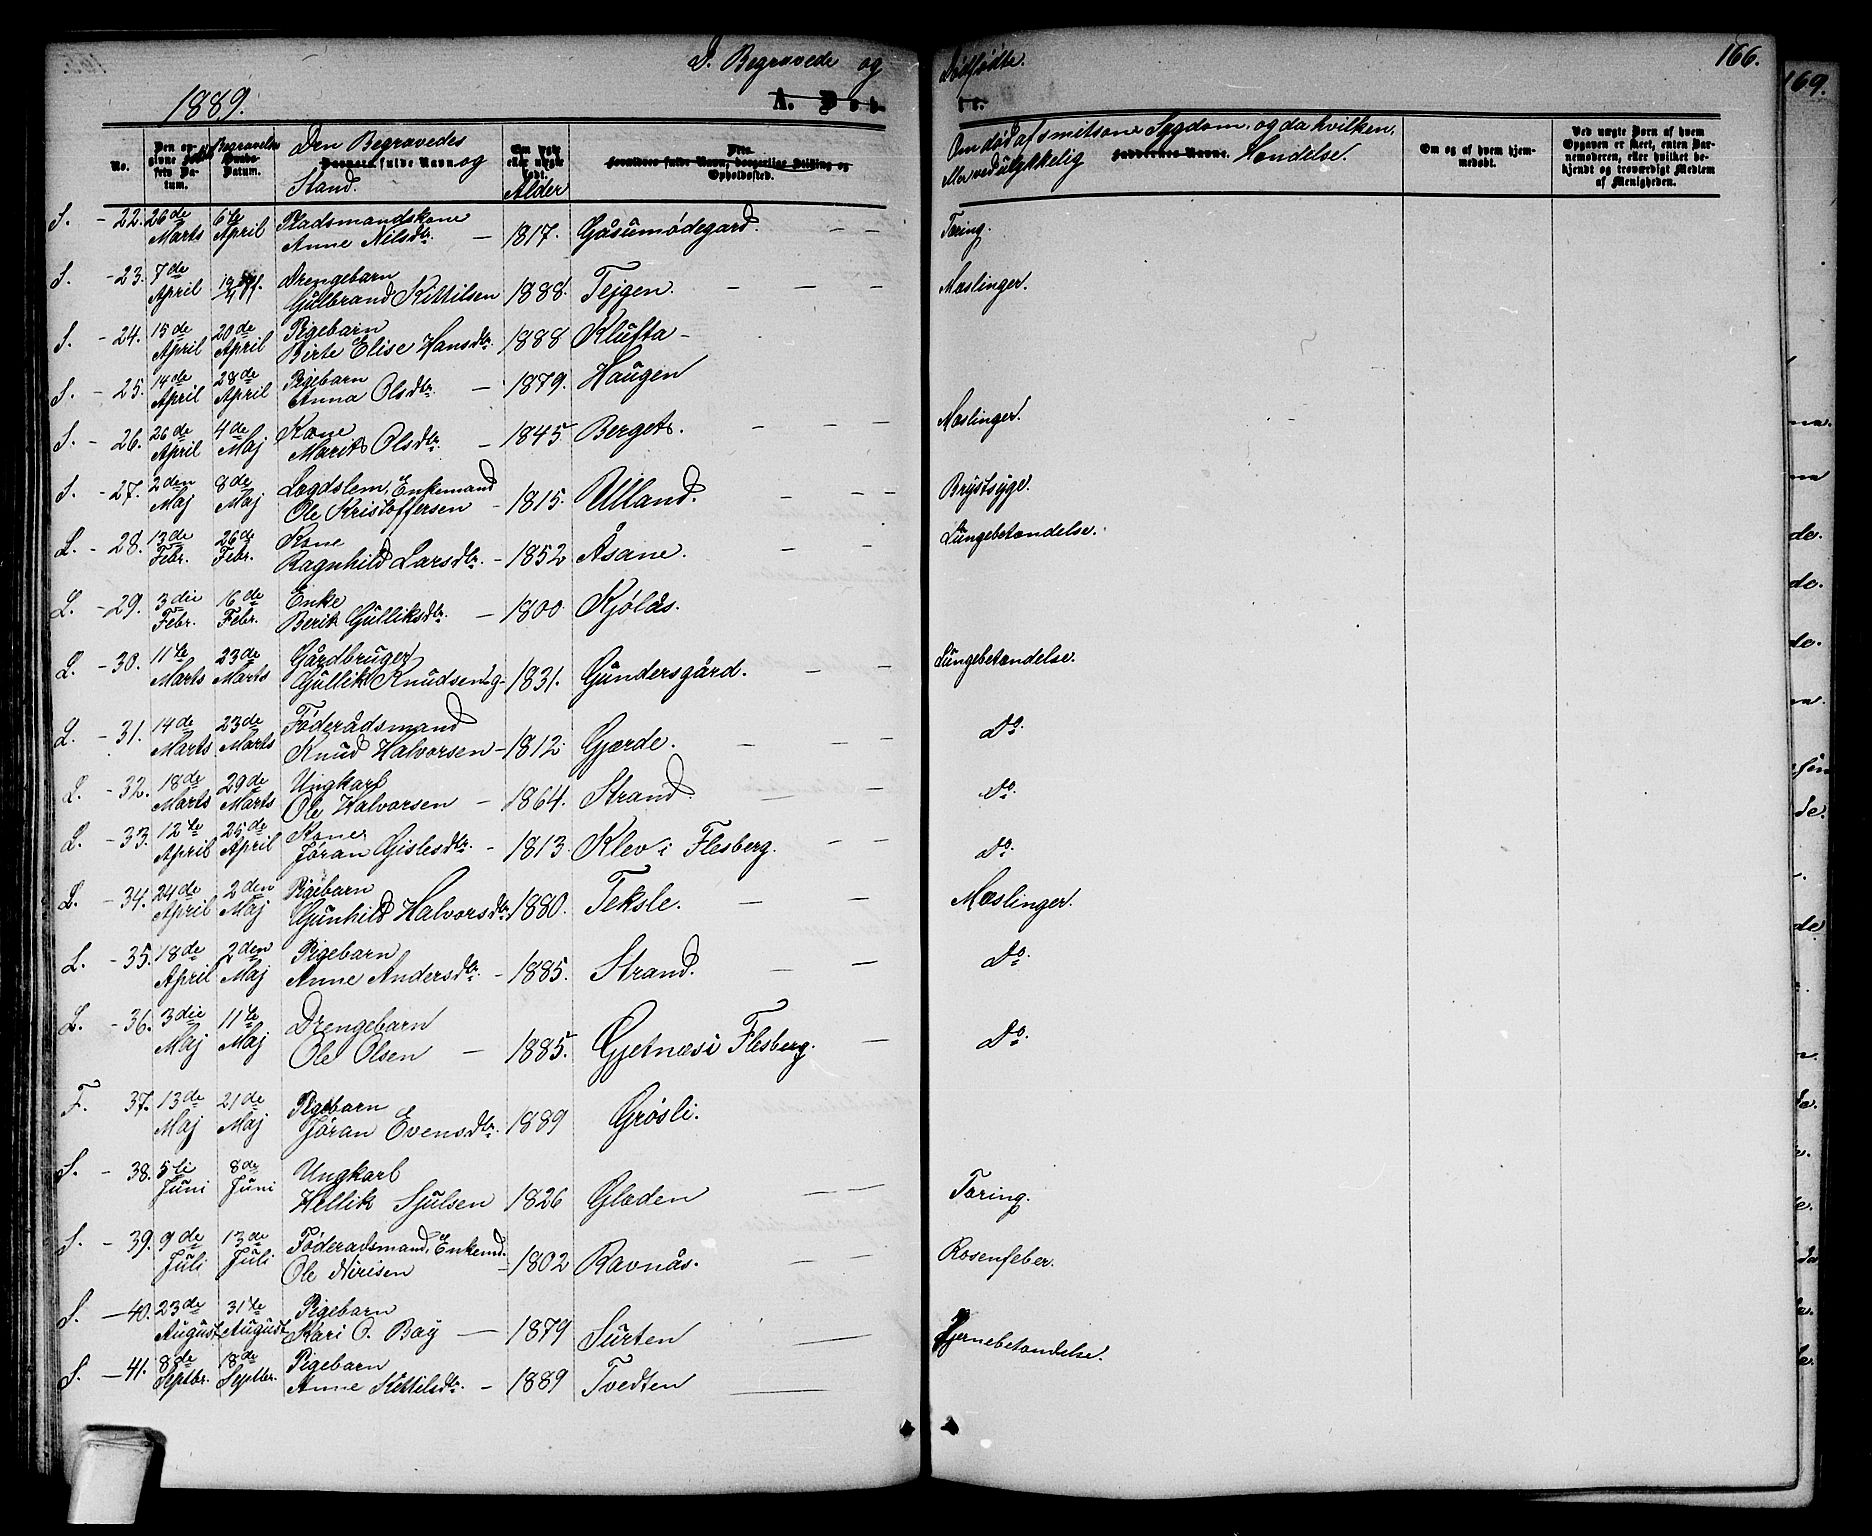 J. Begravede og Dödfødte. 166.
1889. A. Døb- te.
No.
Den opgivne Døds- fødte Datum.
Begravelses Daabs-Datum.
Den Begravedes
Barnets fulde Navn. og
Stand.
Om ægte eller uægte født.
Alder
Den
Forældres fulde Navn, borgerlige Stilling og
Opholdssted.
Om död af smitsom Sygdom, og da hvilken,
eller ved ulykkelig Faddernes Navne. Hændelse.
Om og af hvem hjemmedøbt.
Ved uægte Børn af hvem Opgaven er skeet, enten Barnemoderen, eller hvilket bekjendt og troværdigt Medlem af Menigheden.
S. - 22. 26de Marts 6te April Pladsmandskone Anne Nilsdtr. - 1817. Gåsumødegard. - - Tæring.
S. - 23. 7de April Drengebarn Gulbrand Kittilsen 1888. Tejgen. - - - Mæslinger.
S. - 24. 15de April 20de April Pigebarn Birte Elise Hansdtr. 1888 Klufta -
S. - 25. 14de April 28de April Pigebarn Anna Olsdtr. - 1879. Haugen
S. - 26. 26de April 4de Maj Kone Marit Olsdtr. - 1845 Berget. - - - Mæslinger.
S. - 27. 2den Maj 8de Maj Lægdslem, Enkemand Ole Kristoffersen - 1815. Ulland. - - - Brystsyge.
L. - 28. 13de Febr. 26de Febr. Kone Ragnhild Larsdtr. - 1852 Åsane. - - Lungebetændelse.
L. - 29. 3die Febr. 16de Febr. Enke Berit Gulliksdtr. - 1800 Kjölås.
L. - 30. 11te Marts 23de Marts Gårdbruger Gullik Knudsen 1831. Gundersgård. - - Lungebetændelse.
L. - 31. 14de Marts 23de Marts Föderådsmand Knud Halvorsen - 1812. Gjærde. - - - Do.
L. - 32. 18de Marts 29de Marts Ungkarl Ole Halvorsen - 1864. Strand. - - - Do.
L. - 33. 12te April 25de April Kone Jöran Gislesdtr. - 1813. Klev i Flesberg. - - Do.
L. - 34. 24de April 2den Maj Pigebarn Gunhild Halvorsdtr. 1880. Teksle. - - Mæslinger.
L. - 35. 18de April 2den Maj Pigebarn Anne Andersdtr. - 1885. Strand. - - Do.
L. - 36. 3die Maj 11te Maj Drengebarn Ole Olsen - 1885. Gjetnæs i Flesberg. - Do.
F. 37. 13de Maj 21de Maj Pigebarn Jöran Evensdtr. 1889 Grøsli.
S. - 38. 5te Juni 8de Juni Ungkarl Hellik Sjulsen 1826 Glæden - - Tæring.
S. - 39. 9de Juli 13de Juli Föderadsmand, Enkemd. Ole Nirisen - 1802 Ravnås. - - Rosenfeber.
S. - 40. 23de August 31te August Pigebarn Kari O. Bay - 1879 Surten - Hjernebetændelse.
S. - 41. 8de Septbr. 18de Septbr. Pigebarn Anne Kittilsdtr. - 1889 Tvedten -
169.